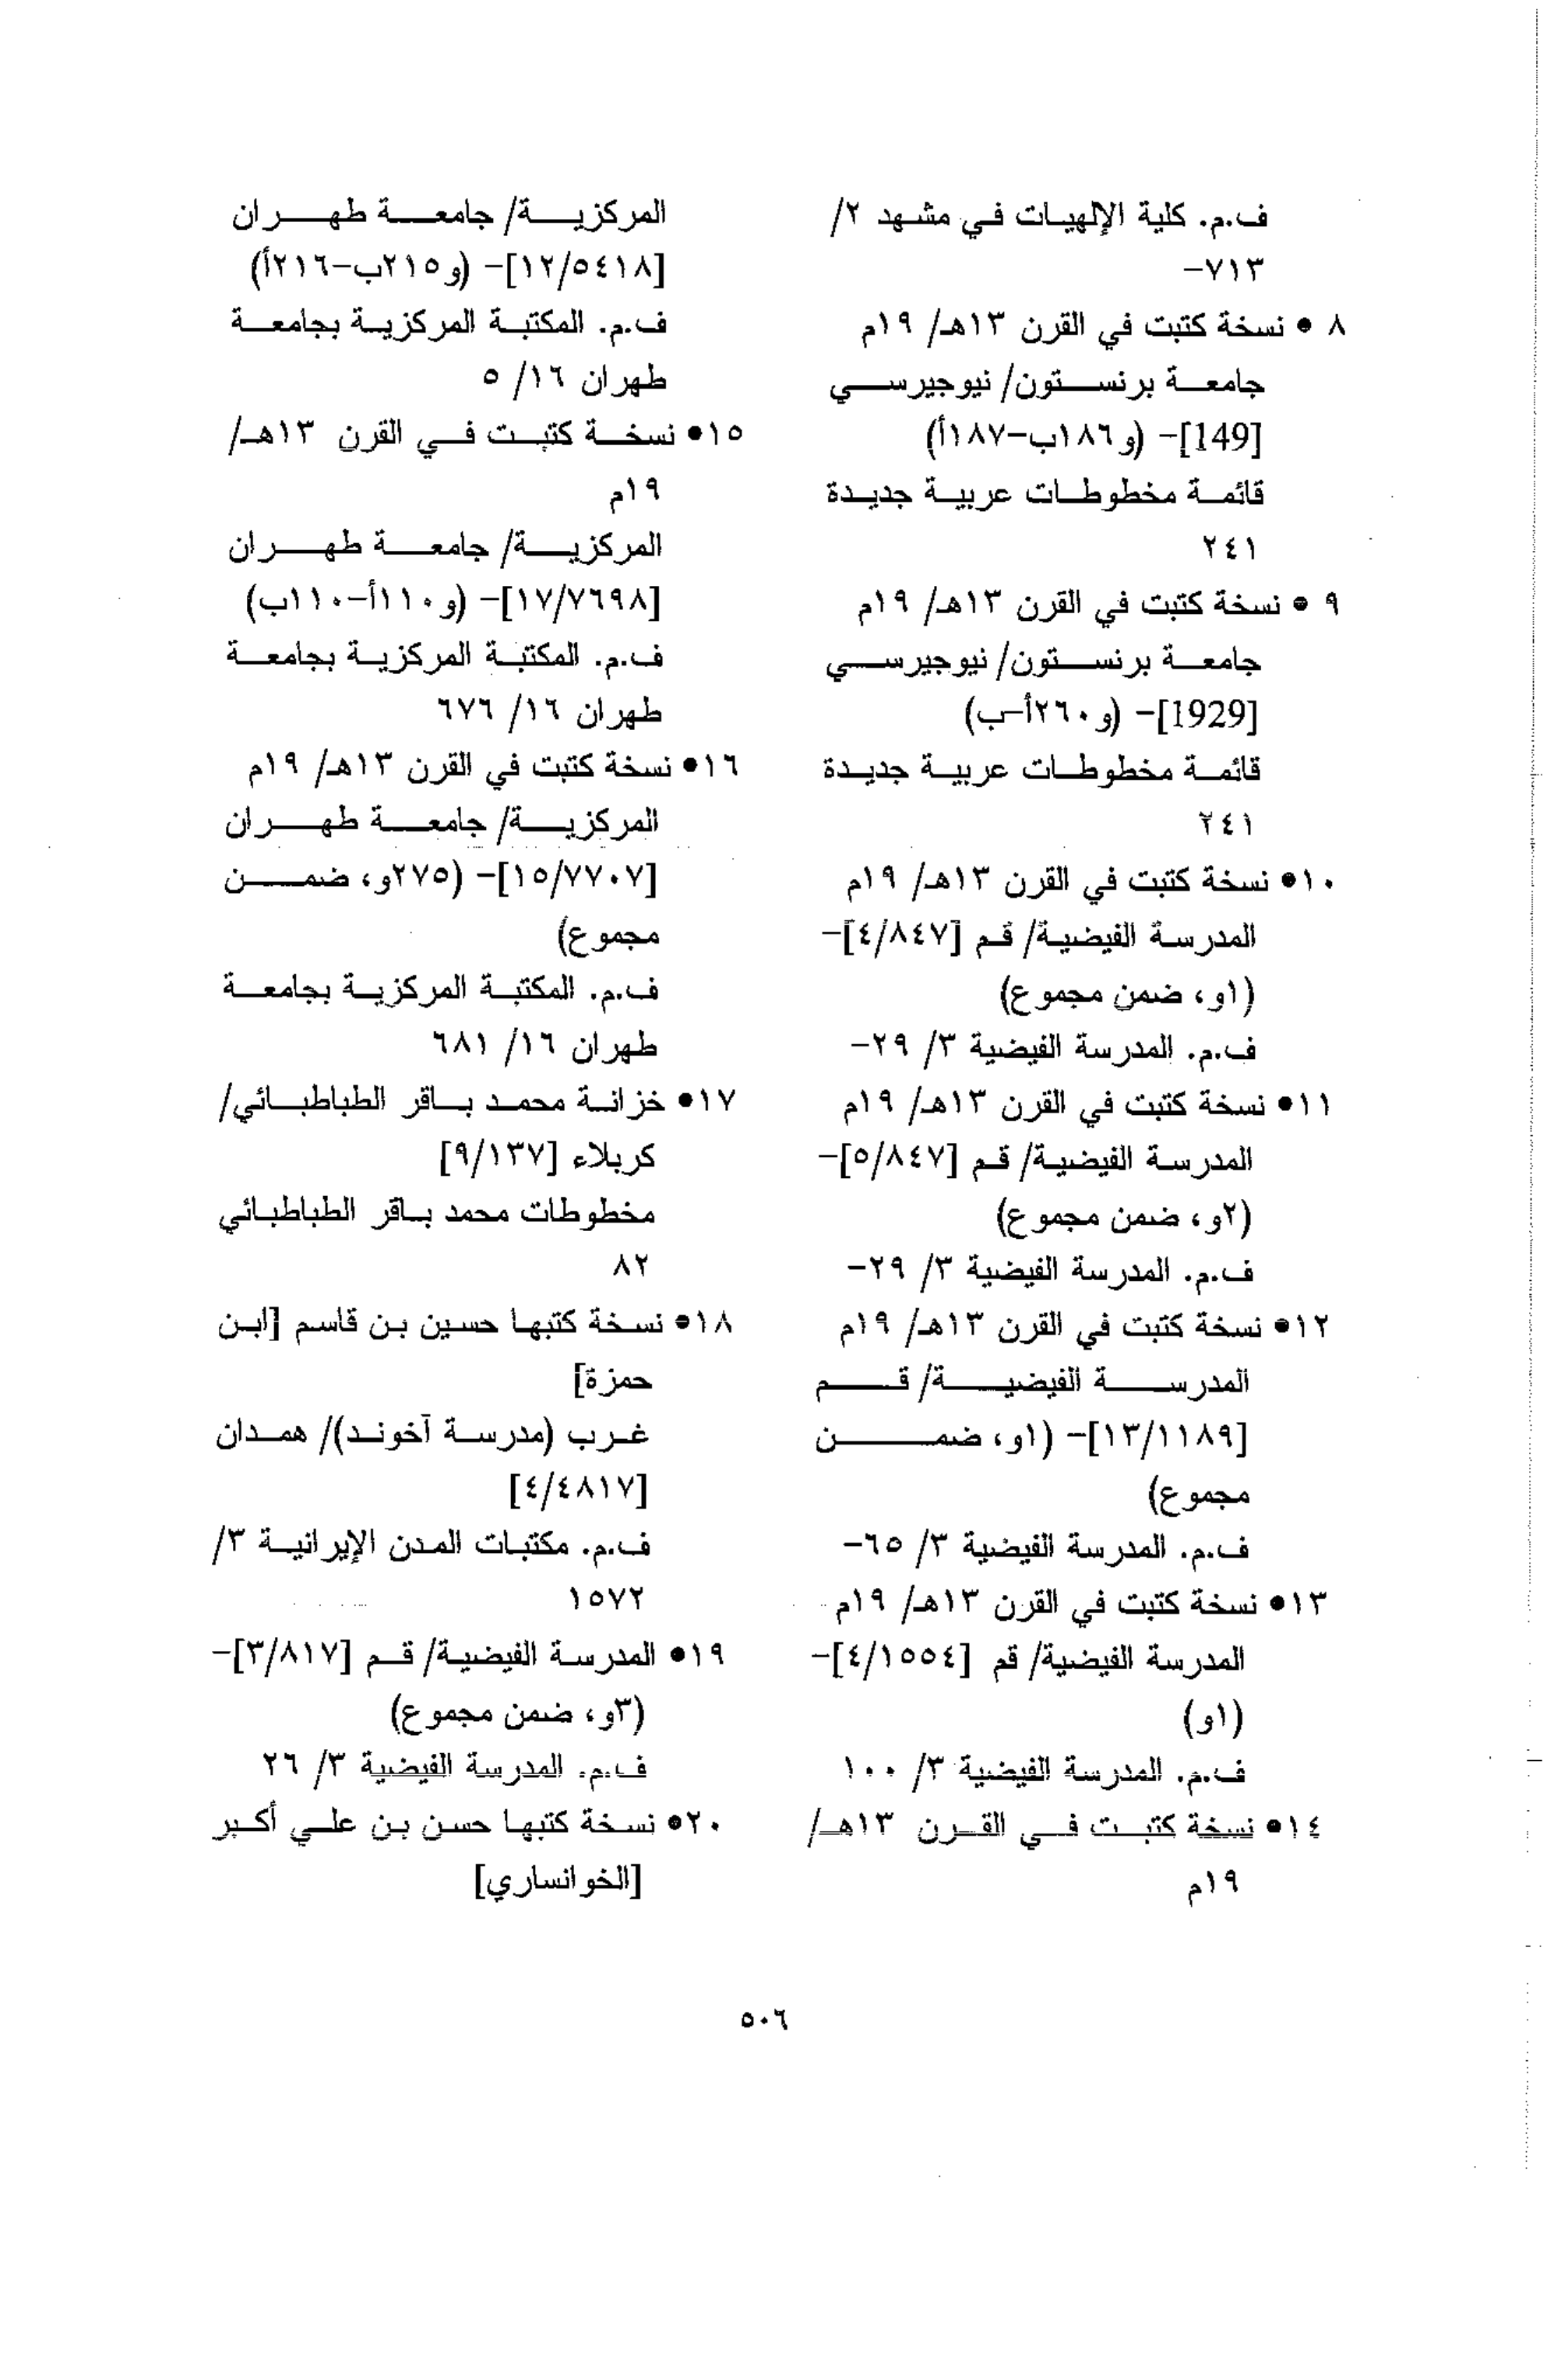 ف.م. كلية الإلهيات في مشهد ٢/
٧١٣-
٨ • نسخة كتبت في القرن ١٣هـ/ ١٩م
جامعة برنستون/ نيوجيرسي
[149]- (و١٨٦ب-١٨٧أ)
قائمة مخطوطات عربية جديدة
٢٤١
٩ • نسخة كتبت في القرن ١٣هـ/ ١٩م
جامعة برنستون/ نيوجيرسي
[1929]- (و٢٦٠أ-ب)
قائمة مخطوطات عربية جديدة
٢٤١
١٠• نسخة كتبت في القرن ١٣هـ/ ١٩م
المدرسة الفيضية/ قم [٤/٨٤٧]-
(١و، ضمن مجموع)
ف.م. المدرسة الفيضية ٣/ ٢٩-
١١• نسخة كتبت في القرن ١٣هـ/ ١٩م
المدرسة الفيضية/ قم [٥/٨٤٧]-
(٢و، ضمن مجموع)
ف.م. المدرسة الفيضية ٣/ ٢٩-
١٢• نسخة كتبت في القرن ١٣هـ/ ١٩م
المدرسة الفيضية/ قم
[١٣/١١٨٩]- (١و، ضمن
مجموع)
ف.م. المدرسة الفيضية ٣/ ٦٥-
١٣• نسخة كتبت في القرن ١٣هـ/ ١٩م
المدرسة الفيضية/ قم [٤/١٥٥٤]-
(١و)
ف.م. المدرسة الفيضية ٣/ ١٠٠
١٤• نسخة كتبت في القرن ١٣هـ/
١٩م
المركزية/ جامعة طهران
[١٢/٥٤١٨]- (و٢١٥ب-٢١٦أ)
ف.م. المكتبة المركزية بجامعة
طهران ١٦/ ٥
١٥• نسخة كتبت في القرن ١٣هـ/
١٩م
المركزية/ جامعة طهران
[١٧/٧٦٩٨]- (و١١٠أ-١١٠ب)
ف.م. المكتبة المركزية بجامعة
طهران ١٦/ ٦٧٦
١٦• نسخة كتبت في القرن ١٣هـ/ ١٩م
المركزية/ جامعة طهران
[١٥/٧٧٠٧]- (٢٧٥و، ضمن
مجموع)
ف.م. المكتبة المركزية بجامعة
طهران ١٦/ ٦٨١
١٧• خزانة محمد باقر الطباطبائي/
كربلاء [٩/١٣٧]
مخطوطات محمد باقر الطباطبائي
٨٢
١٨• نسخة كتبها حسين بن قاسم [ابن
حمزة]
غرب (مدرسة آخوند)/ همدان
[٤/٤٨١٧]
ف.م. مكتبات المدن الإيرانية ٣/
١٥٧٢
١٩• المدرسة الفيضية/ قم [٣/٨١٧]-
(٣و، ضمن مجموع)
ف.م. المدرسة الفيضية ٣/ ٢٦
٢٠• نسخة كتبها حسن بن علي أكبر
[الخوانساري]
٥٠٦